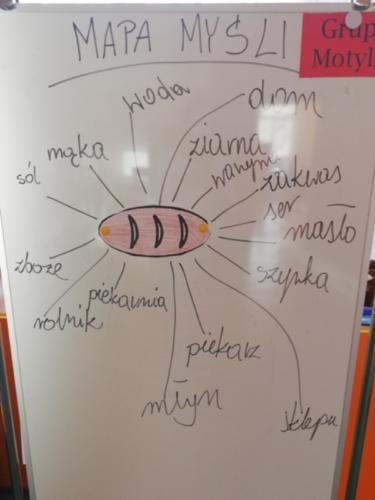 MAPA MYŚLI
Grup
Motyl
woda
dom
ziarna
mąka
zakwas
sól
ser
masło
zboże
szynka
piekarnia
rolnik
piekarz
młyn